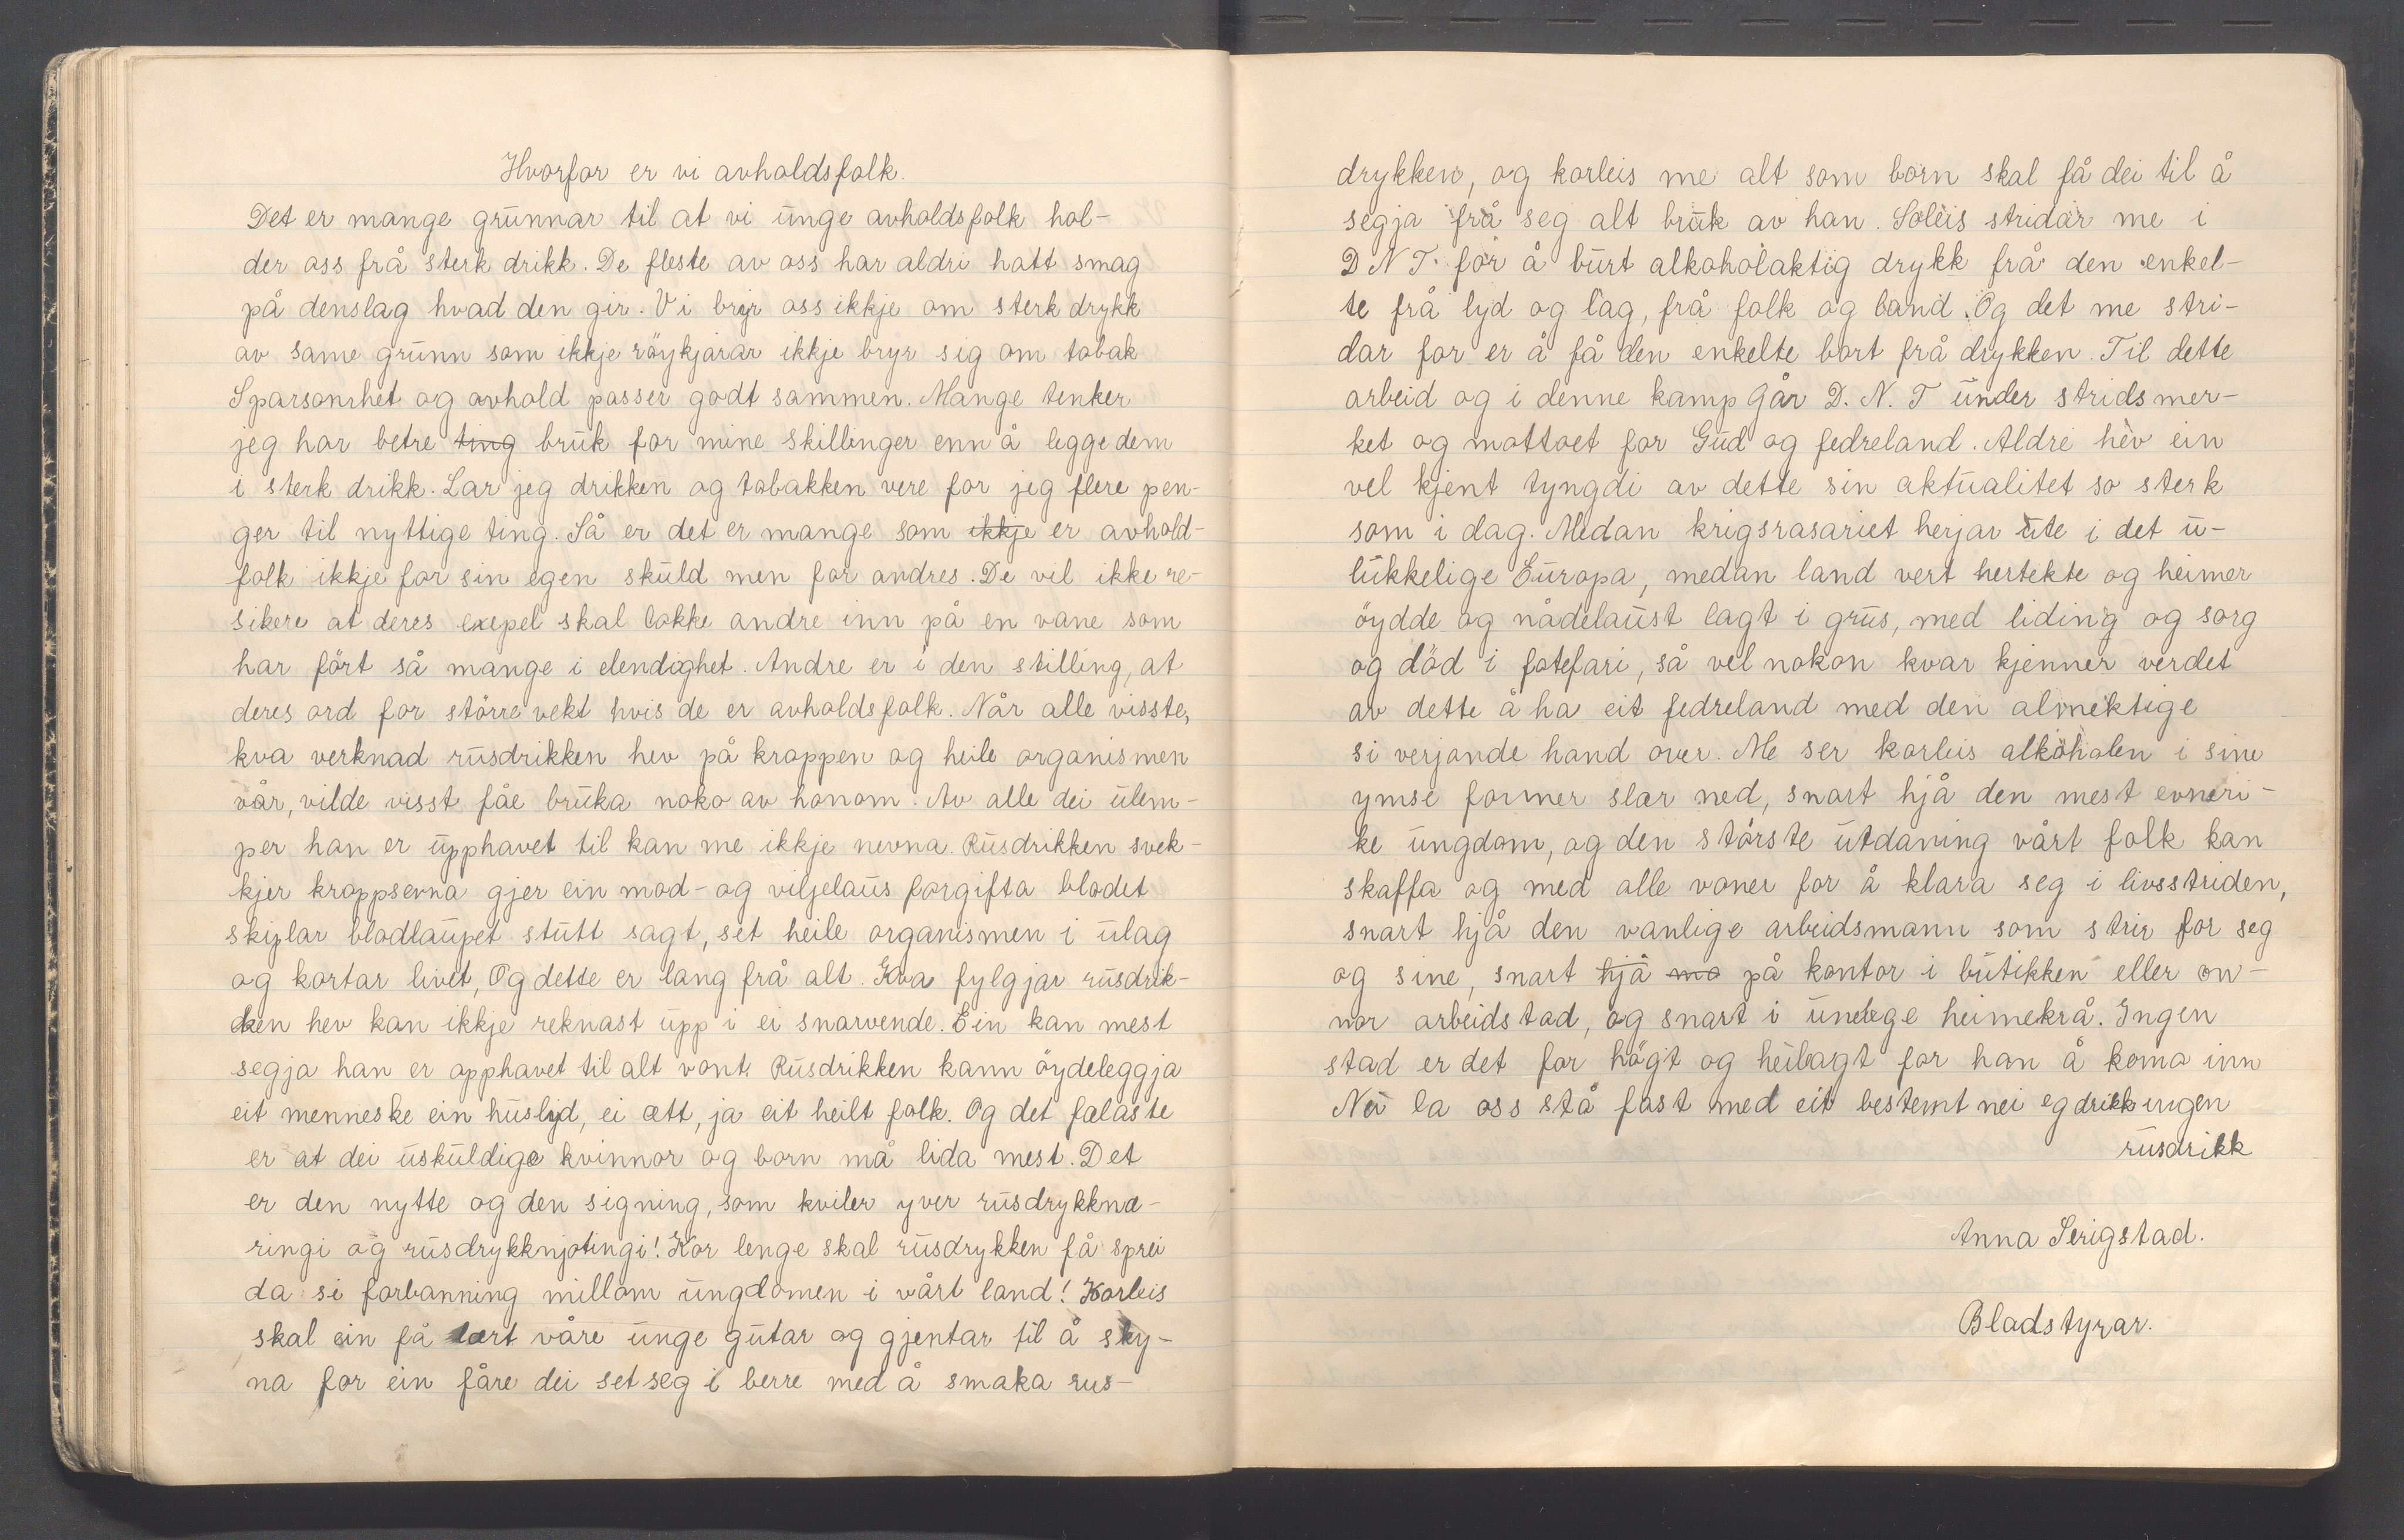 Hvorfor er vi avholdsfolk.
Det er mange grunnar til at vi unge avholdsfolk hol-
der oss frå sterk drikk. De fleste av oss har aldri hatt smag
på denslag hvad den gir. Vi bryr oss ikkje om sterk drykk
av same grunn som ikkje röykjarar ikkje bryr sig om tobak
Sparsomhet og avhold passer godt sammen. Mange tenker
jeg har betre ting bruk for mine skillinger enn å legge dem
i sterk drikk. Lar jeg drikken og tobakken vere for jeg flere pen-
ger til nyttige ting. Så er det er mange som ikkje er avhold-
folk ikkje for sin egen skuld men for andres. De vil ikke re-
sikere at deres exepel skal lokke andre inn på en vane som
har fört så mange i elendighet. Andre er i den stilling, at
deres ord for större vekt hvis de er avholdsfolk. Når alle visste,
kva verknad rusdrikken hev på kroppen og heile organismen
vår, vilde visst fåe bruka noko av honom. Av alle dei ulem-
per han er upphavet til kan me ikkje nevna. Rusdrikken svek-
kjer kroppsevna gjer ein mod- og viljelaus forgifta blodet
skiplar blodlaupet stutt sagt, set heile organismen i ulag
og kortar livet, Og dette er lang frå alt. Kva fylgjar rusdrik-
ken hev kan ikkje reknast upp i ei snarvende. Ein kan mest
segja han er opphavet til alt vont. Rusdrikken kann öydeleggja
eit menneske ein huslyd, ei ætt, ja eit heilt folk. Og det fælaste
er at dei uskuldige kvinnor og born må lida mest. Det
er den nytte og den signing, som kviler yver rusdrykknæ-
ringi og rusdrykknjotingi! Kor lenge skal rusdrykken få sprei
da si forbanning millom ungdomen i vårt land! Korleis
skal ein få lært våre unge gutar og gjentar til å sky-
na for ein fåre dei set seg i berre med å smaka rus-
drykken, og korleis me alt som born skal få dei til å
segja frå seg alt bruk av han. Soleis stridar me i
D N T. for å burt alkoholaktig drykk frå den enkel-
te frå lyd og lag, frå folk og land. Og det me stri-
dar for er å få den enkelte bort frå drykken. Til dette
arbeid og i denne kamp Går D. N. T under stridsmer-
ket og mottoet for Gud og fedreland. Aldri hev ein
vel kjent tyngdi av dette sin aktualitet so sterk
som i dag. Medan krigsrasariet herjar ute i det u-
lukkelige Europa, medan land vert hertekte og heimer
öydde og nådelaust lagt i grus, med liding og sorg
og död i fotefari, så vel nokon kvar kjenner verdet
av dette å ha eit fedreland med den almektige
si verjande hand over. Me ser korleis alkoholen i sine
ymse former slær ned, snart hjå den mest evneri-
ke ungdom, og den störste utdaning vårt folk kan
skaffa og med alle voner for å klara seg i livsstriden,
snart hjå den vanlige arbeidsmann som strir for seg
og sine, snart hjå mo på kontor i butikken eller on-
nor arbeidstad, og snart i undege heimekrå. Ingen
stad er det for högt og heilagt for han å koma inn
Nei la oss stå fast med eit bestemt nei eg drikk ingen
rusdrikk
Anna Serigstad.
Bladstyrar.